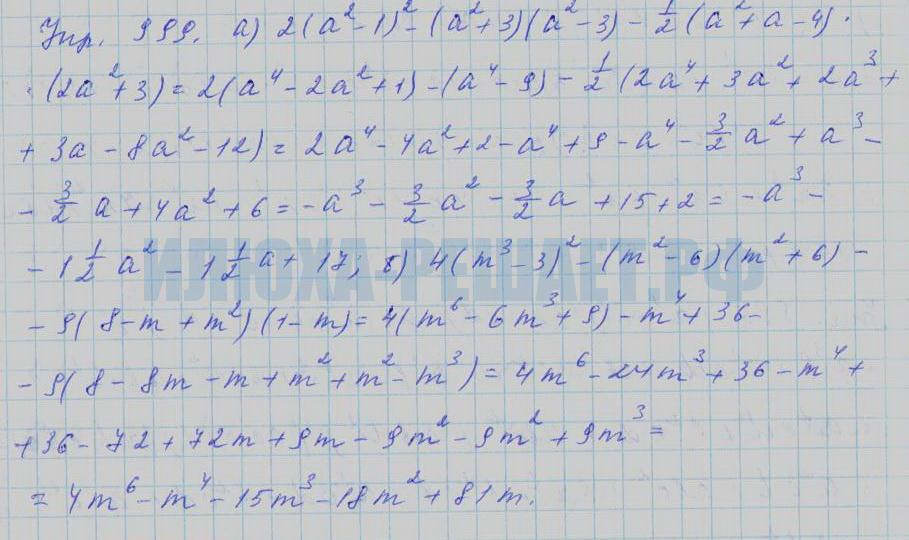 Упр. 999. а) 2(a²-1)² - (a²+3)(a²-3) - 1/2 (a²+a-4)·
·(2a²+3) = 2(a⁴-2a²+1) - (a⁴-9) - 1/2 (2a⁴+3a²+2a³+
+3a-8a²-12) = 2a⁴-4a²+2-a⁴+9-a⁴-3/2 a²+a³-
-3/2 a+4a²+6 = -a³-3/2 a²-3/2 a+15+2 = -a³-
-1 1/2 a²-1 1/2 a+17; б) 4(m³-3)²-(m²-6)(m²+6)-
ИЛЮХА-РЕШАЕТ.РФ
-9(8-m+m²)(1-m) = 4(m⁶-6m³+9)-m⁴+36-
-9(8-8m-m+m²+m²-m³) = 4m⁶-24m³+36-m⁴+
+36-72+72m+9m-9m²-9m²+9m³=
=4m⁶-m⁴-15m³-18m²+81m.